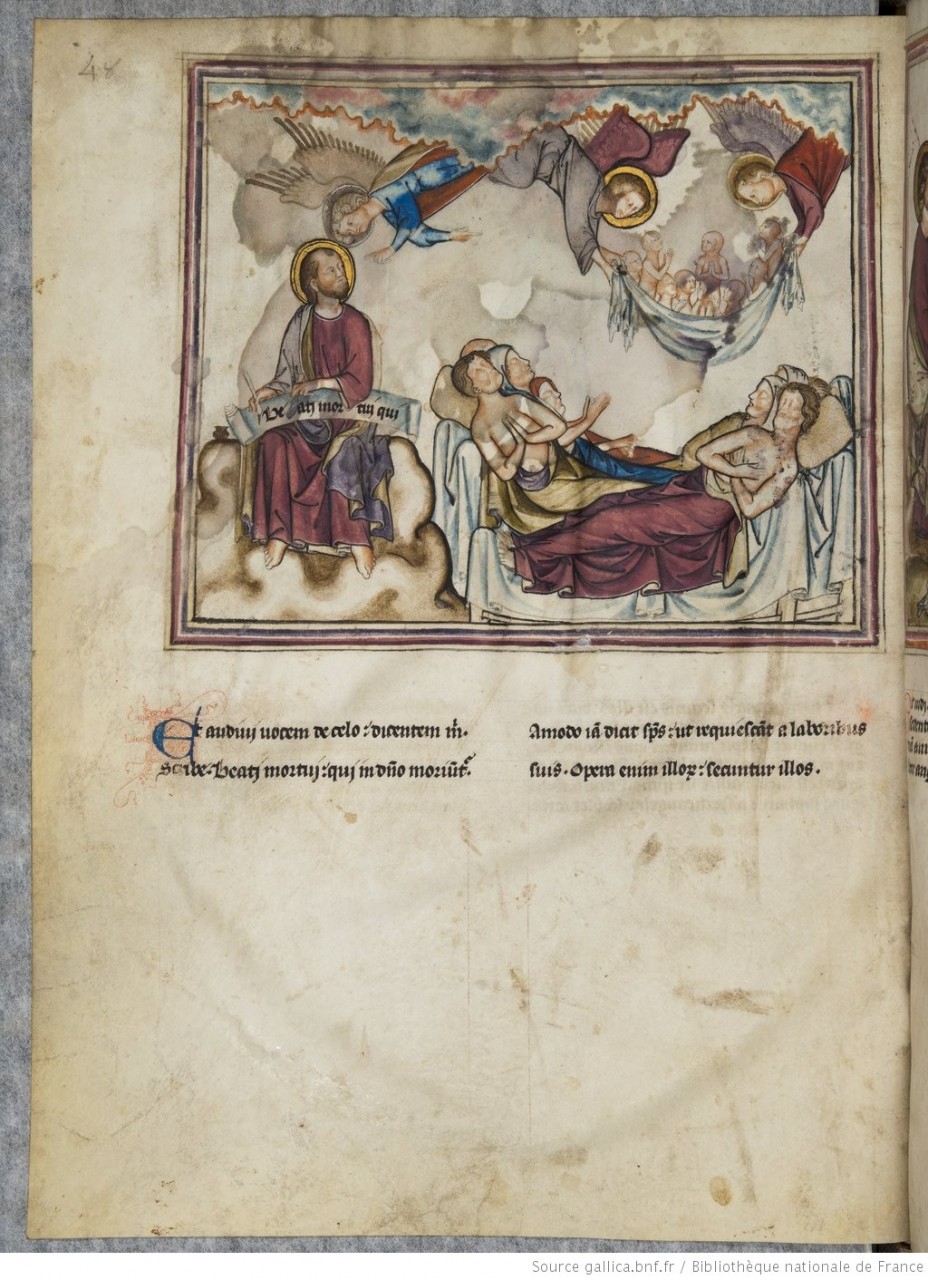 48
Beati mortui qui
Et audivi vocem de celo : dicentem m̅.
Scribe. Beati mortui : qui in dn̄o moriu̅t᷑.
Amodo ia̅ dicit sp̄s : ut requiesca̅t a laboribus
suis. Opera enim illoꝝ : secuntur illos.
Source gallica.bnf.fr / Bibliothèque nationale de France